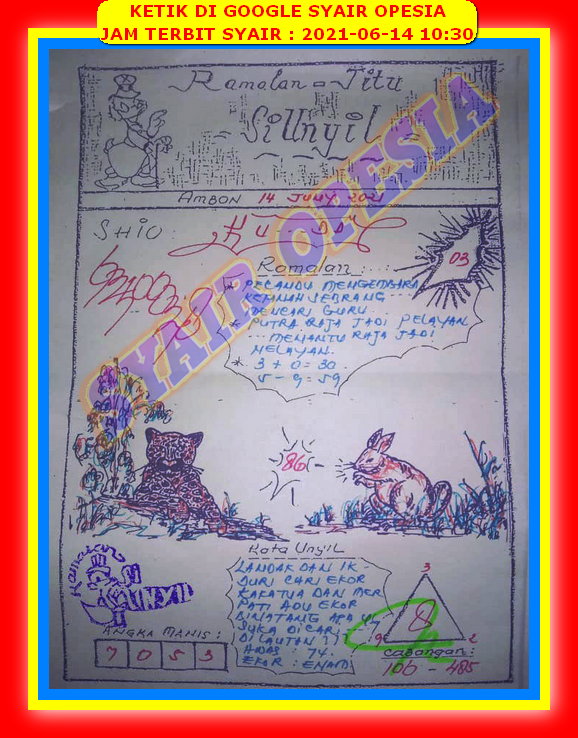 KETIK DI GOOGLE SYAIR OPESIA
JAM TERBIT SYAIR : 2021-06-14 10:30
Ramalan - Jitu
- Si Unyil -
AMBON 14 JUNY 2021
SHIO :
03
Ramalan :
* PECANDU MENGEMBARA
KETANAH SEBRANG
MENCARI GURU
* PUTRA RAJA JADI PELAYAN
MENANTU RAJA JADI
NELAYAN.
* 3 + 0 = 30
5 - 9 = 59
SYAIR OPESIA
86
Kata Unyil
LANDAK DAN IK
DURI CARI EKOR
KAKATUA DAN MER
PATI ADU EKOR
BINATANG APA YG
SUKA DICARI
DI LAUTAN ???
AWAS : 74.
EKOR : ENAM
Ramalan
SI
UNYIL
ANGKA MANIS :
7 0 5 3
3
8
9
2
CABANGAN :
106 - 485